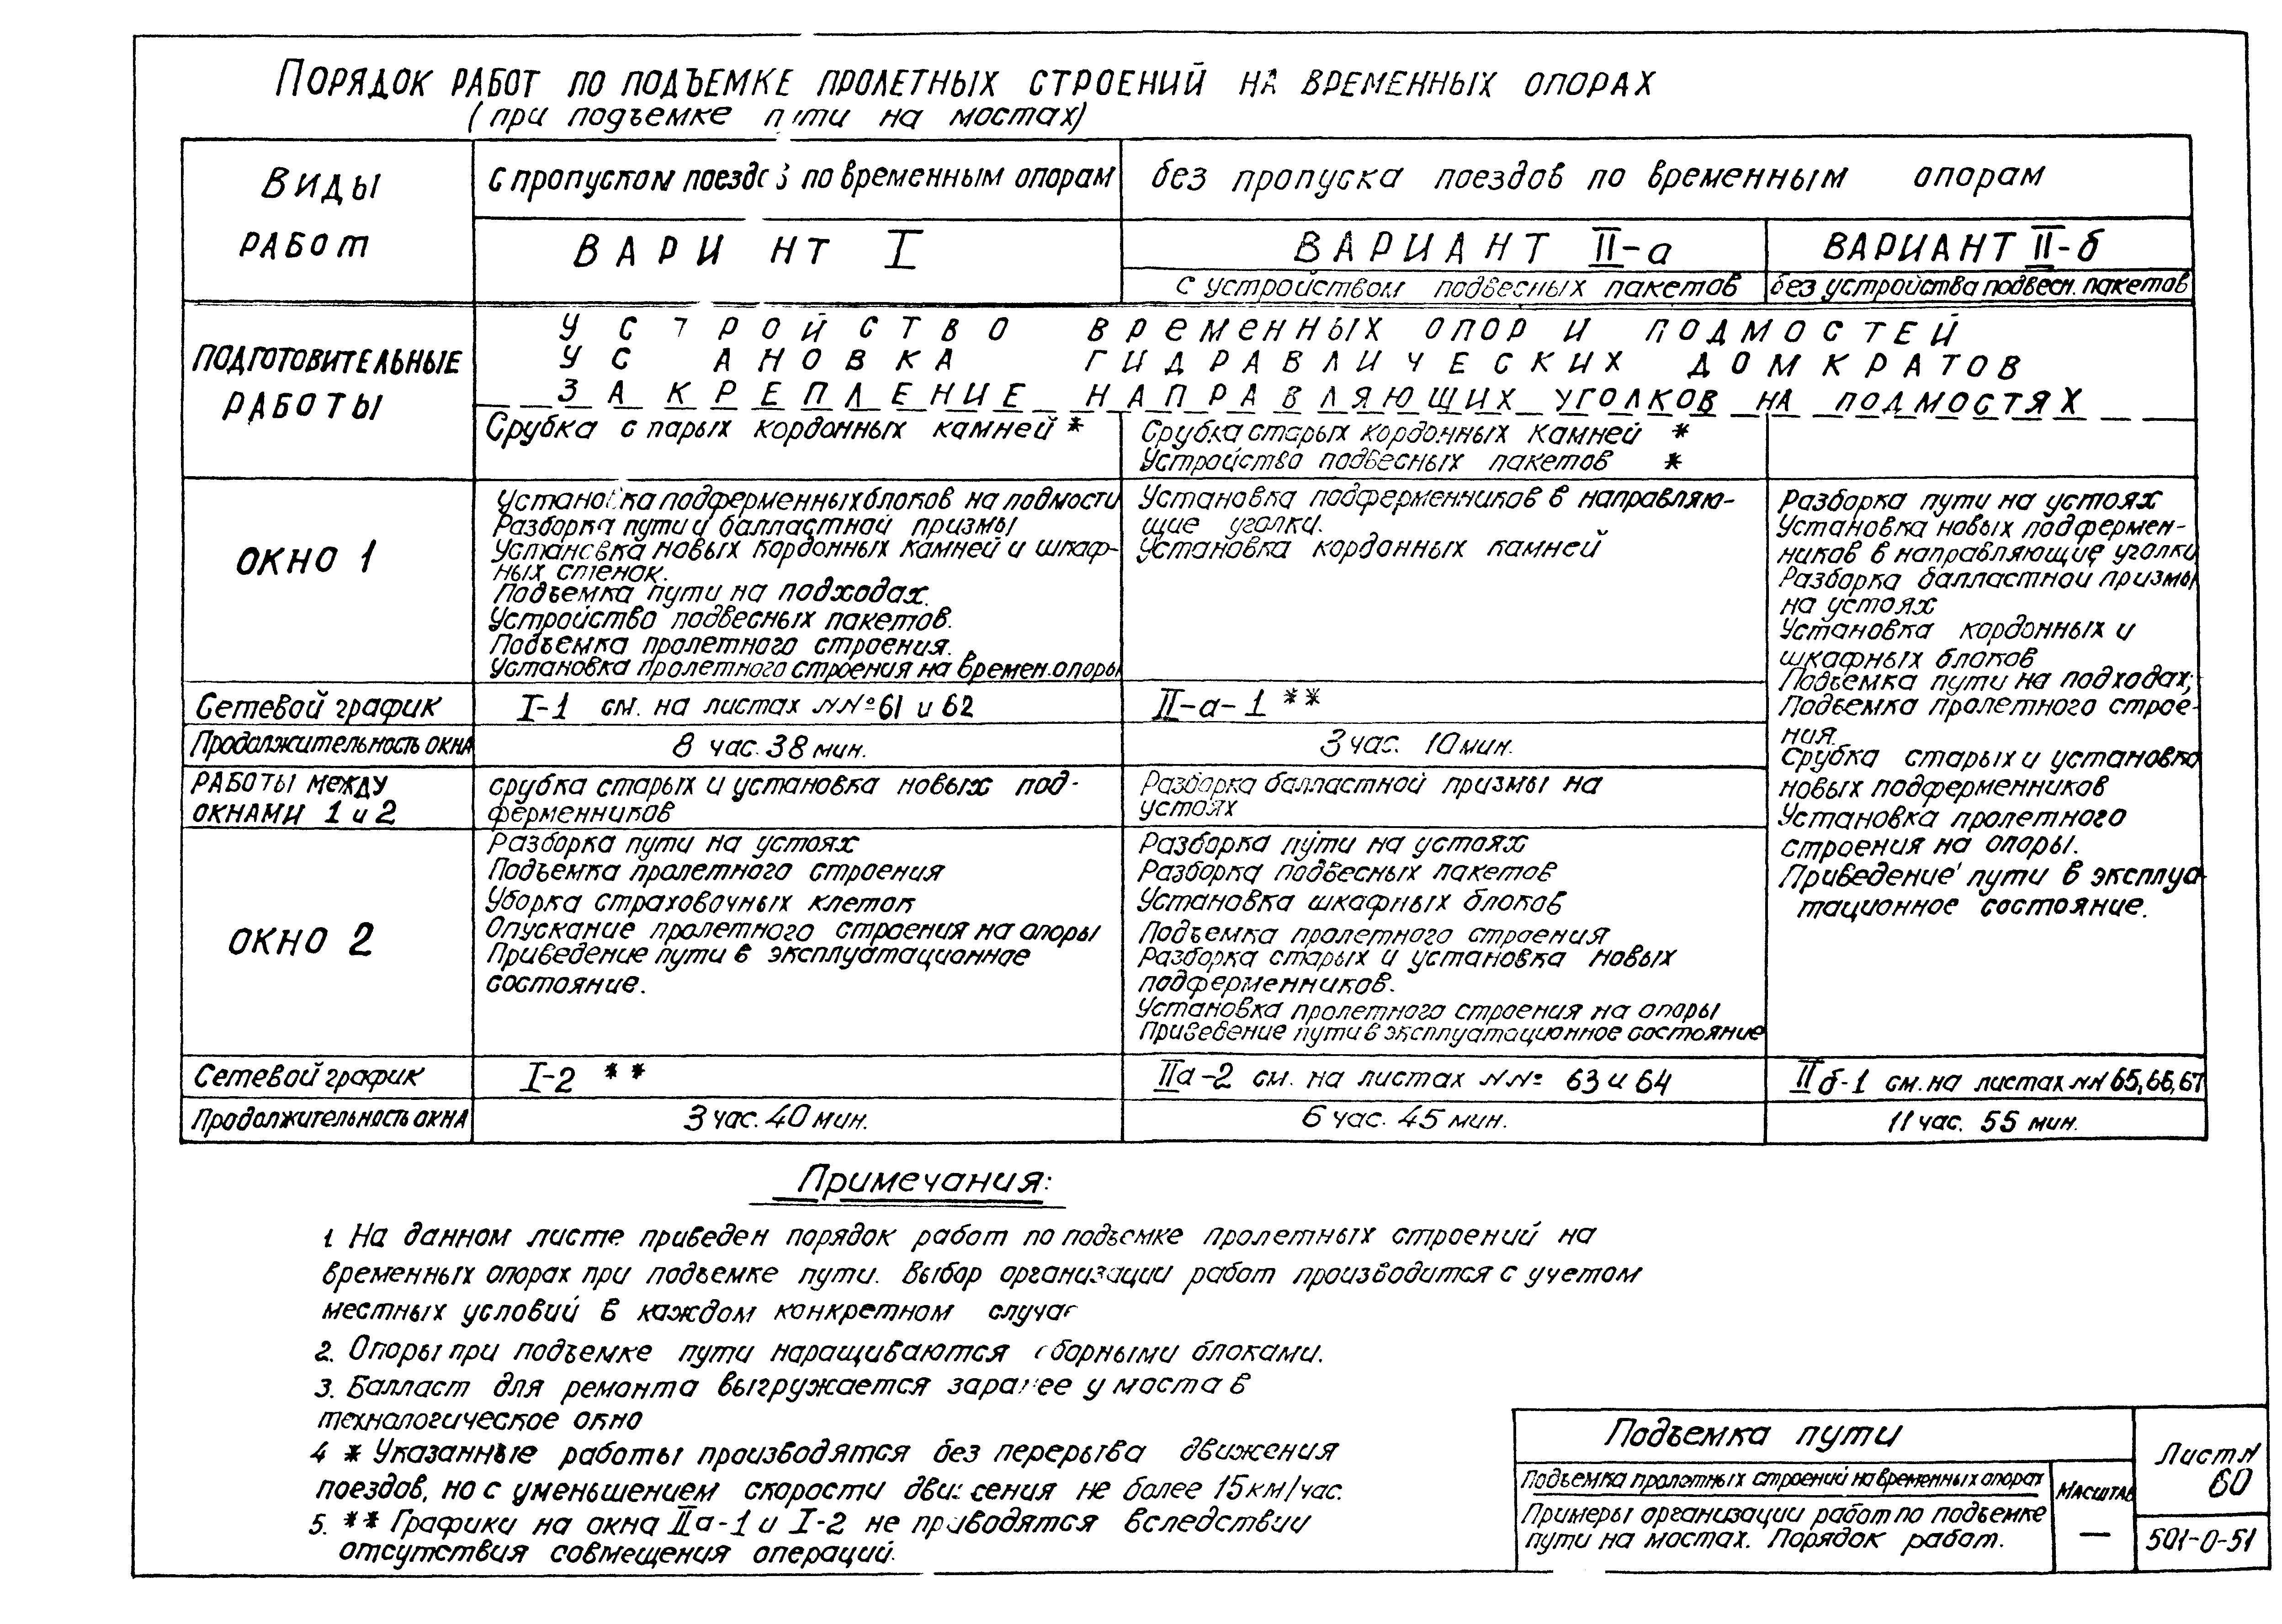 Порядок работ по подъемке пролетных строений на временных опорах
(при подъемке пути на мостах)
Виды
работ
с пропуском поездов по временным опорам
без пропуска поездов по временным опорам
ВАРИ НТ I
ВАРИАНТ II-а
ВАРИАНТ II-б
с устройством подвесных пакетов
без устройства подвесн. пакетов
ПОДГОТОВИТЕЛЬНЫЕ
РАБОТЫ
УСТРОЙСТВО ВРЕМЕННЫХ ОПОР И ПОДМОСТЕЙ
УС АНОВКА ГИДРАВЛИЧЕСКИХ ДОМКРАТОВ
ЗАКРЕПЛЕНИЕ НАПРАВЛЯЮЩИХ УГОЛКОВ НА ПОДМОСТЯХ
Срубка старых кордонных камней *
Срубка старых кордонных камней *
Устройство подвесных пакетов *
ОКНО 1
Установка подферменных блоков на подмости
Разборка пути и балластной призмы
Установка новых кордонных камней и шкаф-
ных стенок.
Подъемка пути на подходах.
Устройство подвесных пакетов.
Подъемка пролетного строения.
Установка пролетного строения на времен. опоры
Установка подферменников в направляю-
щие уголки.
Установка кордонных камней
Разборка пути на устоях
Установка новых подфермен-
ников в направляющие уголки
Разборка балластной призмы
на устоях
Установка кордонных и
шкафных блоков
Подъемка пути на подходах;
Подъемка пролетного строе-
ния.
Срубка старых и установка
новых подферменников
Установка пролетного
строения на опоры.
Приведение пути в эксплуа-
тационное состояние.
Сетевой график
I-1 см. на листах NN° 61 и 62
II-а-1 **
Продолжительность окна
8 час. 38 мин.
3 час. 10 мин.
РАБОТЫ МЕЖДУ
ОКНАМИ 1 и 2
срубка старых и установка новых под-
ферменников
Разборка балластной призмы на
устоях
ОКНО 2
Разборка пути на устоях
Подъемка пролетного строения
Уборка страховочных клеток
Опускание пролетного строения на опоры
Приведение пути в эксплуатационное
состояние.
Разборка пути на устоях
Разборка подвесных пакетов
Установка шкафных блоков
Подъемка пролетного строения
Разборка старых и установка новых
подферменников.
Установка пролетного строения на опоры
Приведение пути в эксплуатационное состояние
Сетевой график
I-2 **
IIа-2 см. на листах NN° 63 и 64
II б-1 см. на листах NN 65, 66, 67
Продолжительность окна
3 час. 40 мин.
6 час. 45 мин.
11 час. 55 мин.
Примечания:
1 На данном листе приведен порядок работ по подъемке пролетных строений на
временных опорах при подъемке пути. Выбор организации работ производится с учетом
местных условий в каждом конкретном случае
2. Опоры при подъемке пути наращиваются сборными блоками.
3. Балласт для ремонта выгружается заранее у моста в
технологическое окно
4 * Указанные работы производятся без перерыва движения
поездов, но с уменьшением скорости движения не более 15 км/час.
5. ** Графики на окна IIа-1 и I-2 не приводятся вследствии
отсутствия совмещения операций.
Подъемка пути
Подъемка пролетных строений на временных опорах
Примеры организации работ по подъемке
пути на мостах. Порядок работ.
Масштаб
—
Лист N
60
501-0-51